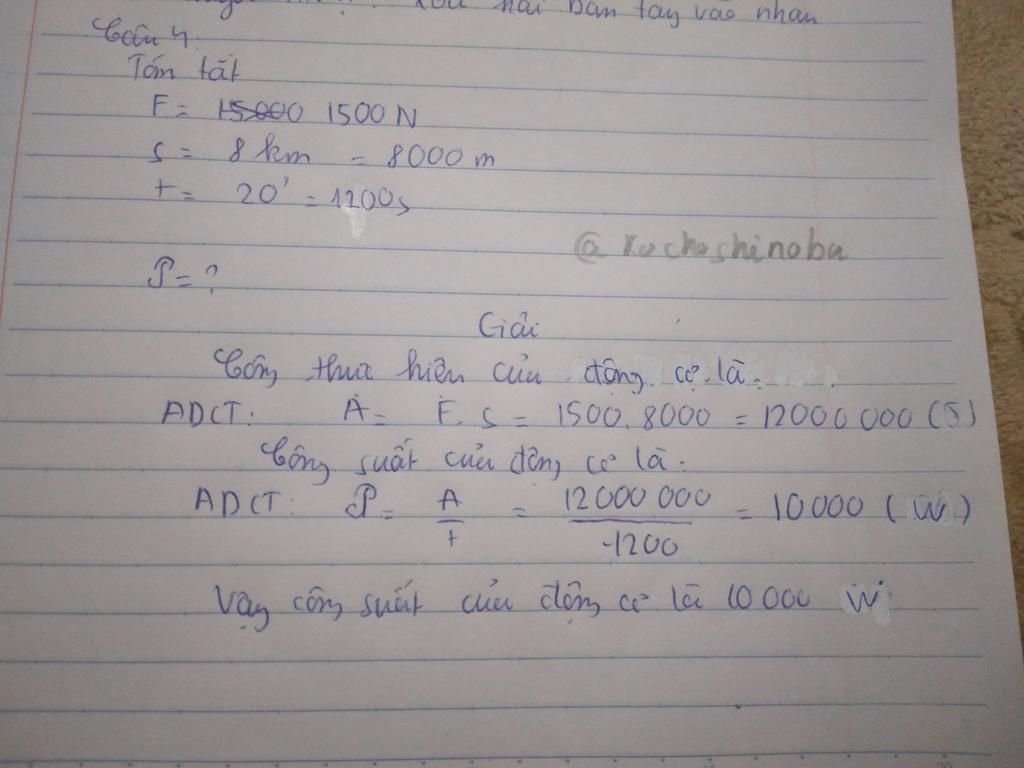 hai bàn tay vào nhau
Câu 4.
Tóm tắt
F = 15000 1500 N
s = 8 km = 8000 m
t = 20' = 1200s
@ Kochoshinobu
P = ?
Giải
Công thực hiện của động cơ là:
ADCT: A = F. s = 1500. 8000 = 12000 000 (J)
Công suất của động cơ là:
ADCT: P = A/t = 12000 000/1200 = 10 000 (W)
Vậy công suất của động cơ là 10 000 W